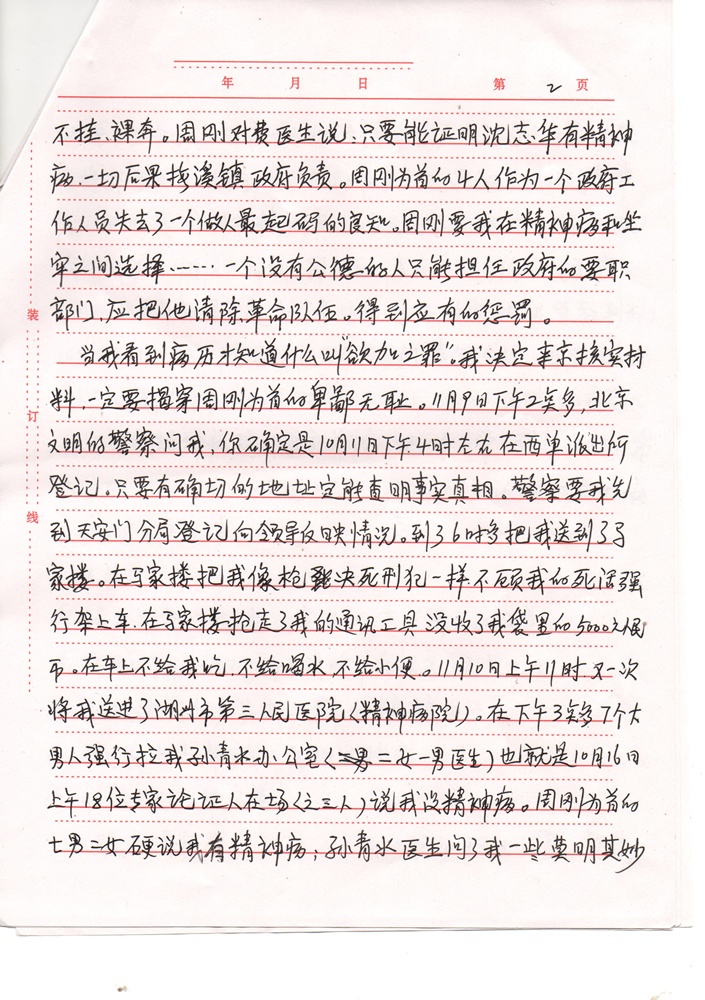 年 月 日 第 2 页
不挂、裸奔。周刚对费医生说：只要能证明沈志华有精神
病，一切后果埭溪镇政府负责。周刚为首的4人作为一个政府工
作人员失去了一个做人最起码的良知。周刚要我在精神病和坐
牢之间选择……一个没有公德的人只能担任政府的要职
部门，应把他清除革命队伍。得到应有的惩罚。
当我看到病历才知道什么叫“欲加之罪”。我决定来京核实材
料，一定要揭穿周刚为首的卑鄙无耻。11月9日下午2点多，北京
文明的警察问我，你确定是10月11日下午4时左右在西单派出所
登记。只要有确切的地址定能查明事实真相。警察要我先
到天安门分局登记向领导反映情况。到了6时多把我送到了马
家楼。在马家楼把我像枪决死刑犯一样不顾我的死活强
行架上车，在马家楼抢走了我的通讯工具没收了我袋里的5000元人民
币。在车上不给我吃，不给喝水，不给小便。11月10日上午11时又一次
将我送进了湖州市第三人民医院（精神病院）。在下午3点多7个大
男人强行拉我孙青水办公室（二女一男医生）也就是10月16日
上午18位专家论证人在场（之三人）说我没精神病。周刚为首的
七男二女硬说我有精神病；孙青水医生问了我一些莫明其妙
装
订
线